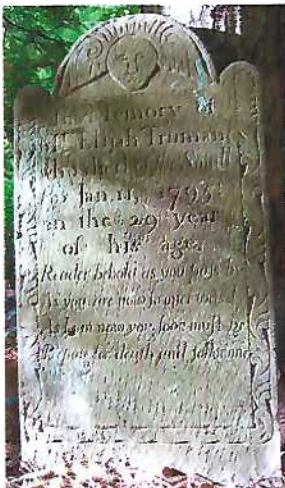 In Memory of
Mr. Elijah Truman
who died of the Small
Pox Jan. 11th 1793
in the 29 year
of his age.
Reader behold as you pass by
As you are now so once was I
As I am now you soon must be
Prepare for death and follow me